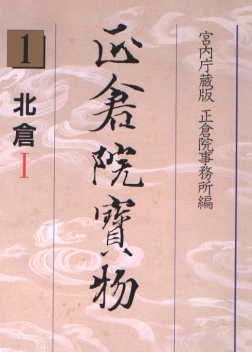 宮内庁蔵版 正倉院事務所編
正倉院寳物
1
北倉
I